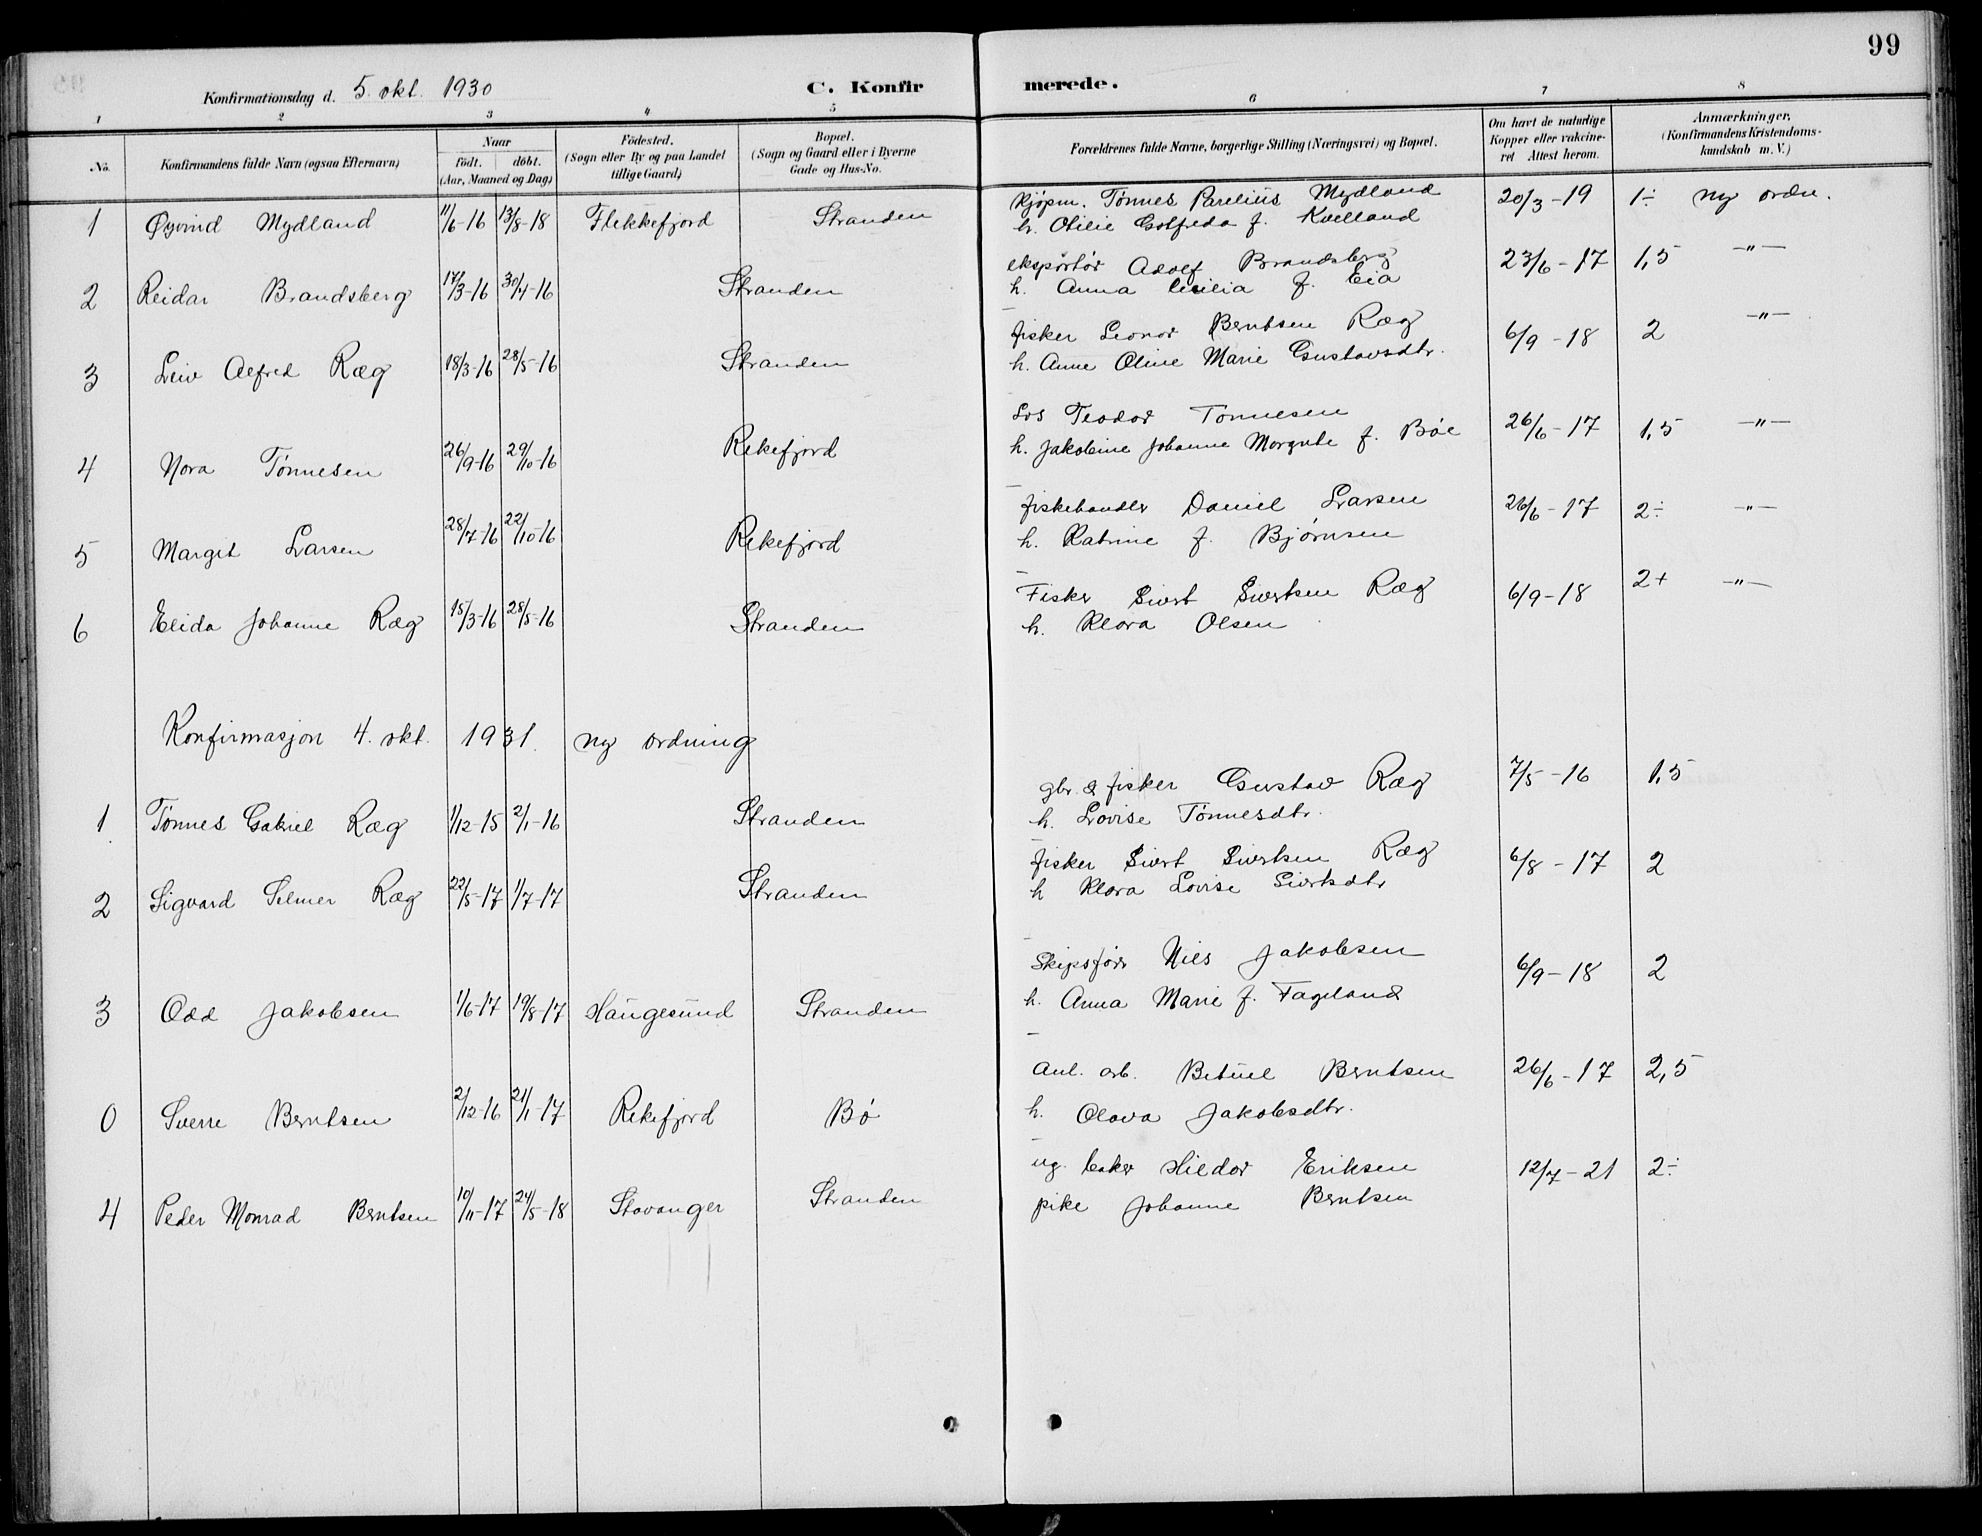 99
Konfirmationsdag d. 5. okt. 1930
C. Konfirmerede.
1 2 3 4 5 6 7 8
No.
Konfirmandens fulde Navn (ogsaa Efternavn)
Naar
födt. döbt.
(Aar, Maaned og Dag)
Födested.
(Sogn eller By og paa Landet
tillige Gaard)
Bopæl.
(Sogn og Gaard eller i Byerne
Gade og Hus-No.
Forældrenes fulde Navne, borgerlige Stilling (Næringsvei) og Bopæl.
Om havt de naturlige
Kopper eller vakcine-
ret Attest herom.
Anmærkninger,
(Konfirmandens Kristendoms-
kundskab m. V.)
1 Øyvind Mydland 11/6-16 13/8-18 Flekkefjord Stranden
Kjøpm. Tønnes Parelius Mydland 20/3-19 1÷ ny ordn.
h. Otilie Gotfreda f. Kvelland
2 Reidar Brandsberg 17/3-16 30/4-16 Stranden
eksportør Adolf Brandsberg 23/6-17 1,5 -"-
h. Anna Cecilia f. Eia
3 Leiv Alfred Ræg 18/3-16 28/5-16 Stranden
fisker Leonor Berntsen Ræg 6/9-18 2 -"-
h. Anne Oline Marie Gustavsdtr.
4 Nora Tønnesen 26/9-16 29/10-16 Rekefjord
Los Teodor Tonnesen 26/6-17 1,5 -"-
h. Jakobine Johanne Margrete f. Bøe
5 Margit Larsen 28/7-16 22/10-16 Rekefjord
fiskehandler Daniel Larsen 26/6-17 2÷ -"-
h. Katrine f. Bjørnsen
6 Elida Johanne Ræg 15/3-16 28/5-16 Stranden
Fisker Sivert Sivertsen Ræg 6/9-18 2+ -"-
h. Klara Olsen
Konfirmasjon 4. okt. 1931. ny ordning
1 Tønnes Gabriel Ræg 1/12-15 2/1-16 Stranden
gbr. & fisker Gustav Ræg 7/5-16 1,5
h. Lovise Tønnesdtr.
2 Sigvard Selmer Ræg 22/5-17 1/7-17 Stranden
fisker Sivert Sivertsen Ræg 6/8-17 2
h Klara Lovise Sivertsdtr
3 Odd Jakobsen 1/6-17 19/8-17 Haugesund Stranden
Skipsfører Nils Jakobsen 6/9-18 2
h. Anna Marie f. Fageland
0 Sverre Berntsen 2/12-16 21/1-17 Rekefjord Bø
anl. arb. Betuel Berntsen 26/6-17 2,5
h. Olava Jakobsdtr.
4 Peder Monrad Berntsen 10/11-17 24/5-18 Stavanger Stranden
ug. baker Hildor Eriksen 12/7-21 2÷
pike Johanne Berntsen